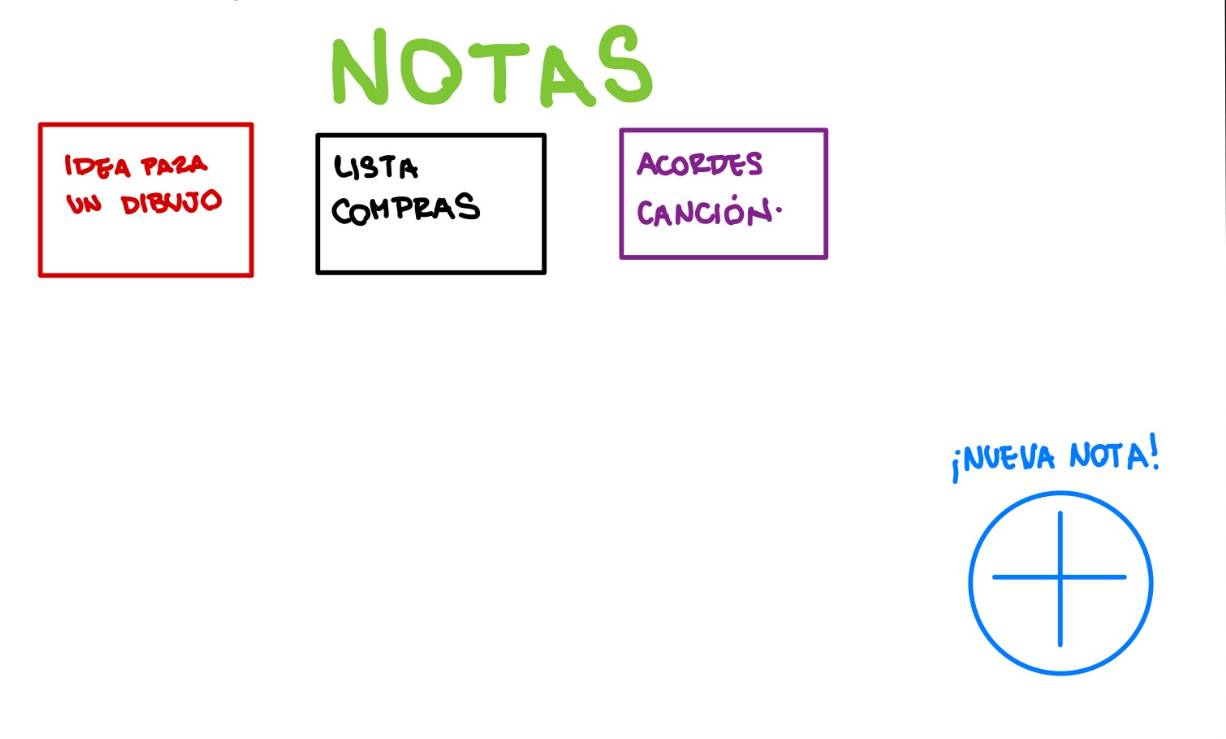 NOTAS
IDEA PARA
UN DIBUJO
LISTA
COMPRAS
ACORDES
CANCIÓN.
¡NUEVA NOTA!